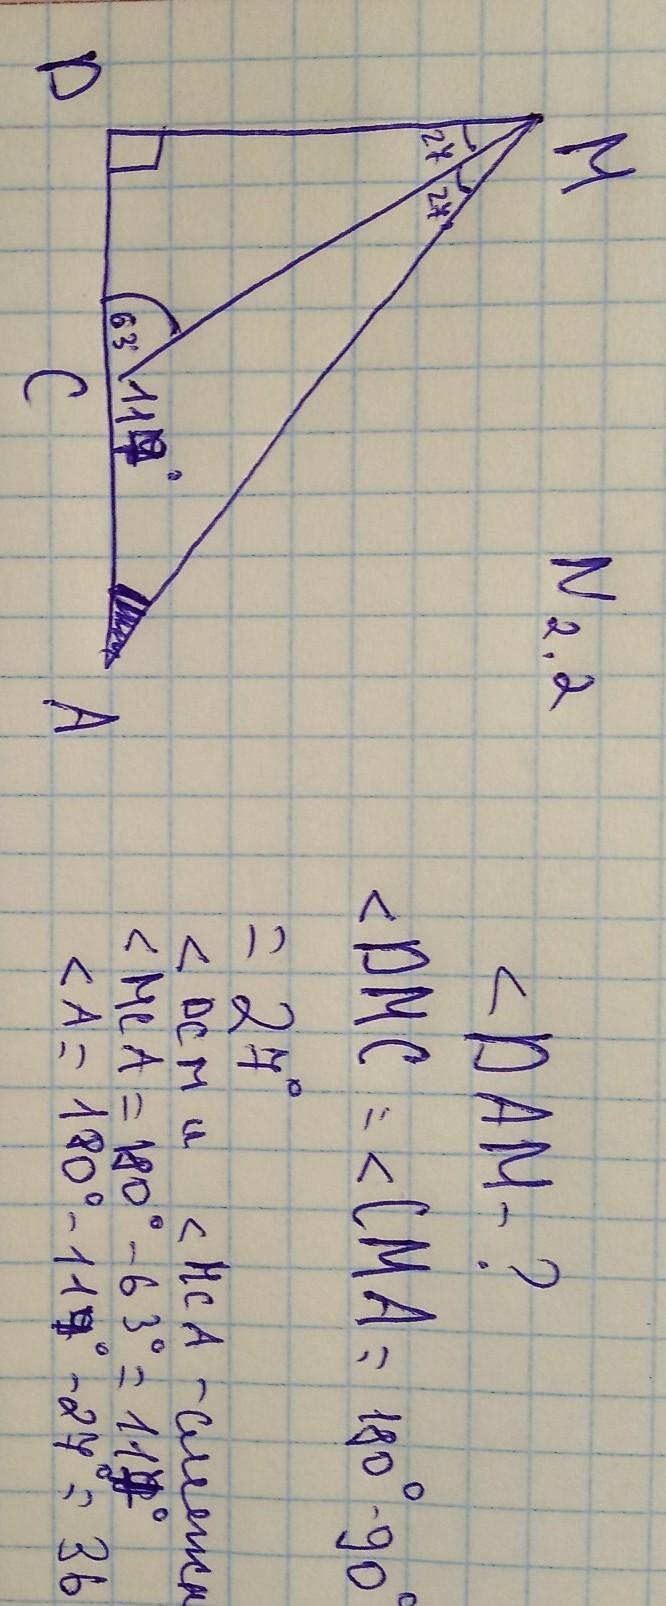 N 2.2
M
27
27°
D
63°
117°
C
A
<DAM-?
<DMC = <CMA = 180°-90°
= 27°
<DCM и <MCA -
<MCA = 180° - 63° = 117°
<A = 180° - 117° - 27° = 36